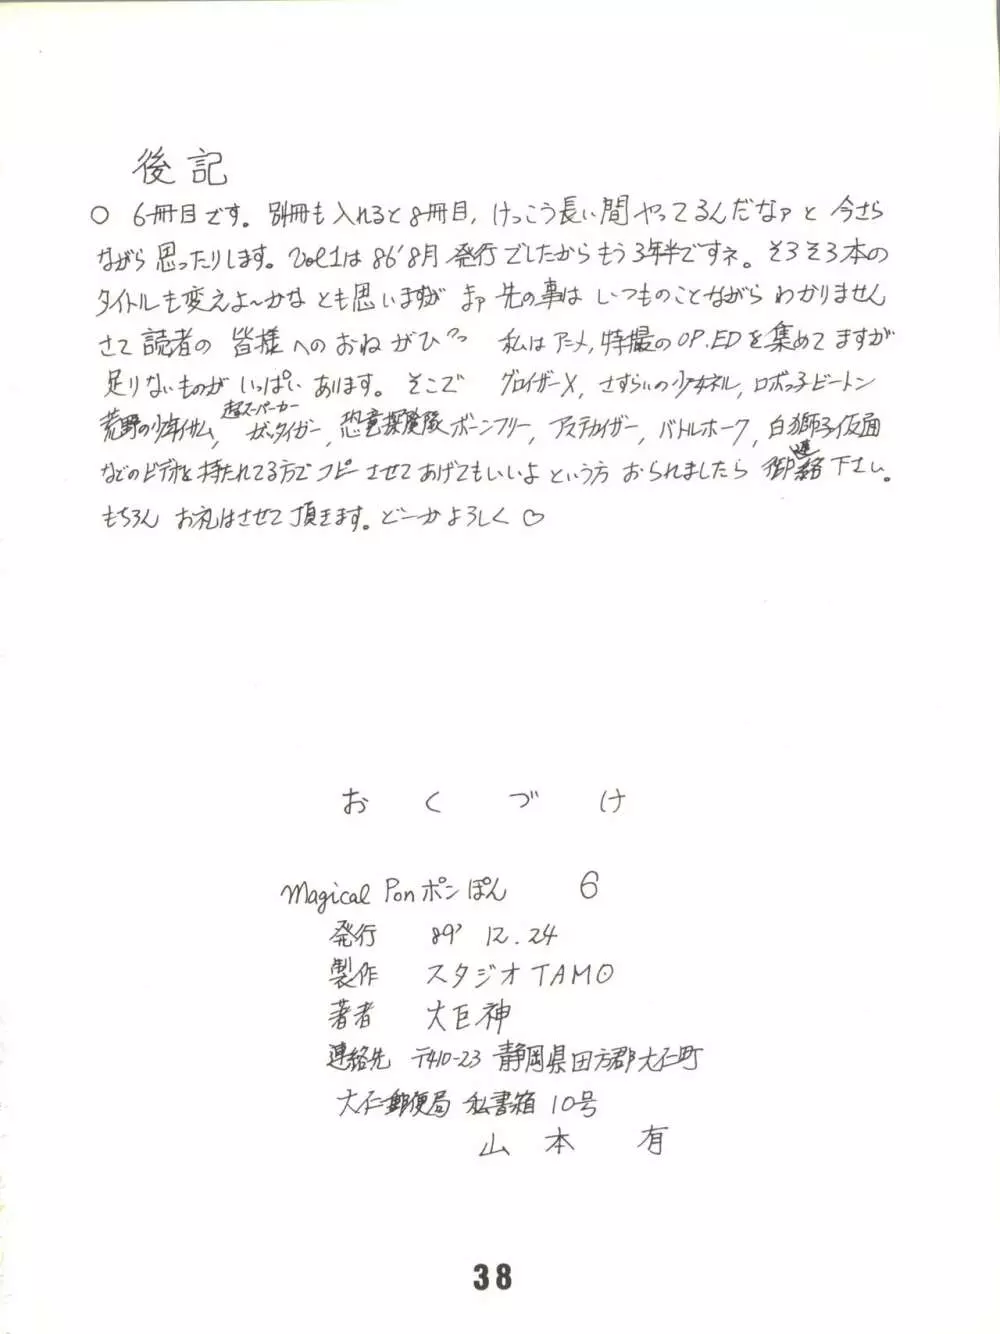 後記
○ 6冊目です。別冊も入れると8冊目，けっこう長い間やってるんだなァと今さら
ながら思ったりします。Vol1は86'8月発行でしたからもう3年半ですネ。そろそろ本の
タイトルも変えよ〜かなとも思いますが まァ先の事は いつものことながら わかりません
さて読者の皆様へのおねがひ 私はアニメ，特撮のOP.EDを集めてますが
足りないものがいっぱいあります。そこで グロイザーX，さすらいの少女ネル，ロボっ子ビートン
荒野の少年イサム，超スーパーカーガッタイガー，恐竜探険隊ボーンフリー，アステカイザー，バトルホーク，白獅子仮面
などのビデオを持たれてる方でコピーさせてあげてもいいよという方おられましたら御連絡下さい。
もちろんお礼はさせて頂きます。どーかよろしく♡
おくづけ
Magical Ponポンぽん 6
発行 89' 12.24
製作 スタジオTAMO
著者 大巨神
連絡先 〒410-23 静岡県田方郡大仁町
大仁郵便局 私書箱 10号
山本 有
38